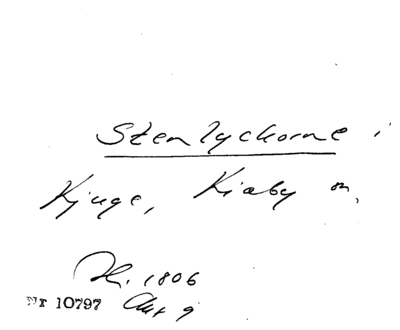 Stenlyckorne i
Kjuge, Kiaby sn,
1806
Nr 10797 Akt 9